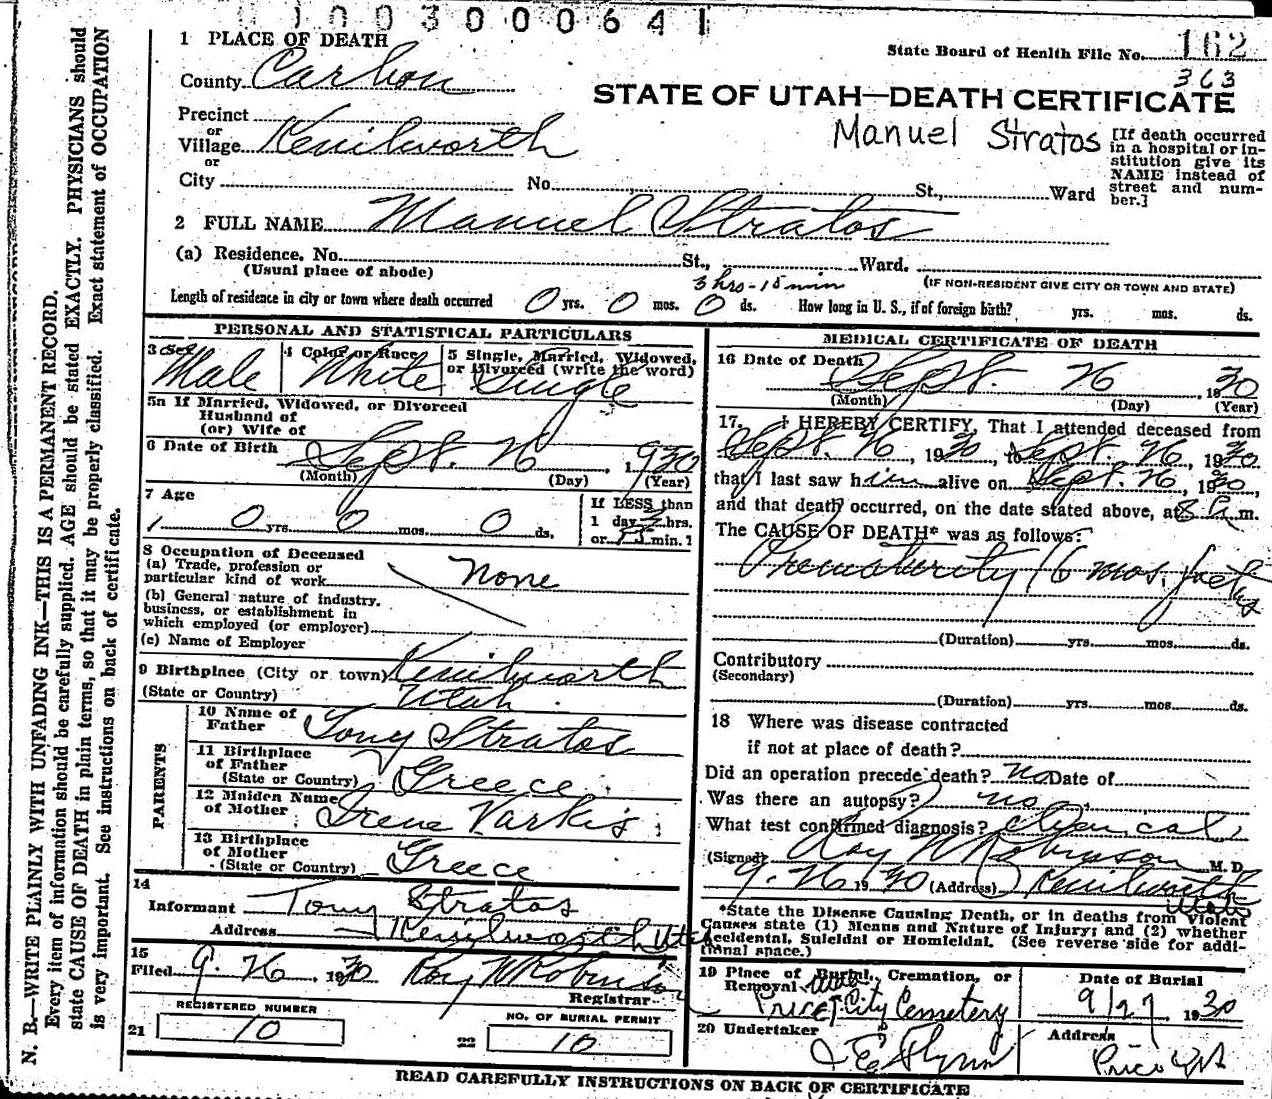 1003000641
1 PLACE OF DEATH
State Board of Health File No. 162
363
County Carbon
STATE OF UTAH—DEATH CERTIFICATE
Manuel Stratos
[If death occurred
in a hospital or in-
stitution give its
NAME instead of
street and num-
ber.]
Precinct
or
Village Kenilworth
or
City No. St., Ward
2 FULL NAME Manuel Stratos
(a) Residence. No. St., Ward.
(Usual place of abode)
(IF NON-RESIDENT GIVE CITY OR TOWN AND STATE)
3 hrs - 15 min
Length of residence in city or town where death occurred 0 yrs. 0 mos. 0 ds. How long in U. S., if of foreign birth? yrs. mos. ds.
PERSONAL AND STATISTICAL PARTICULARS
3 Sex Male
4 Color or Race White
5 Single, Married, Widowed,
or Divorced (write the word) Single
5a If Married, Widowed, or Divorced
Husband of
(or) Wife of
6 Date of Birth Sept. 26, 1930
(Month) (Day) (Year)
7 Age
0 yrs. 0 mos. 0 ds.
If LESS than
1 day 3 hrs.
or 15 min.
8 Occupation of Deceased
(a) Trade, profession or
particular kind of work none
(b) General nature of industry,
business, or establishment in
which employed (or employer)
(c) Name of Employer
9 Birthplace (City or town) Kenilworth
(State or Country) Utah
PARENTS
10 Name of
Father Tony Stratos
11 Birthplace
of Father
(State or Country) Greece
12 Maiden Name
of Mother Irene Varkis
13 Birthplace
of Mother
(State or Country) Greece
14
Informant Tony Stratos
Address Kenilworth Utah
15
Filed 9-26 1930 Roy W Robinson
Registrar
REGISTERED NUMBER
21 10
NO. OF BURIAL PERMIT
22 10
MEDICAL CERTIFICATE OF DEATH
16 Date of Death Sept. 26, 1930
(Month) (Day) (Year)
17. I HEREBY CERTIFY, That I attended deceased from
Sept. 26, 1930, to Sept. 26, 1930
that I last saw him alive on Sept. 26, 1930,
and that death occurred, on the date stated above, at 8 P.m.
The CAUSE OF DEATH* was as follows:
Prematurity 6 mos. foetus
(Duration) yrs. mos. ds.
Contributory
(Secondary)
(Duration) yrs. mos. ds.
18 Where was disease contracted
if not at place of death?
Did an operation precede death? no Date of
Was there an autopsy? no
What test confirmed diagnosis? clinical
(Signed) Roy W Robinson M. D.
9-26 1930 (Address) Kenilworth
Utah
*State the Disease Causing Death, or in deaths from Violent
Causes state (1) Means and Nature of Injury; and (2) whether
Accidental, Suicidal or Homicidal. (See reverse side for addi-
tional space.)
19 Place of Burial, Cremation, or
Removal
Price City Cemetery
Date of Burial
9/27 1930
20 Undertaker
J E Flynn
Address
Price Ut
READ CAREFULLY INSTRUCTIONS ON BACK OF CERTIFICATE
N. B.—WRITE PLAINLY WITH UNFADING INK—THIS IS A PERMANENT RECORD.
Every item of information should be carefully supplied. AGE should be stated EXACTLY. PHYSICIANS should
state CAUSE OF DEATH in plain terms, so that it may be properly classified. Exact statement of OCCUPATION
is very important. See instructions on back of certificate.